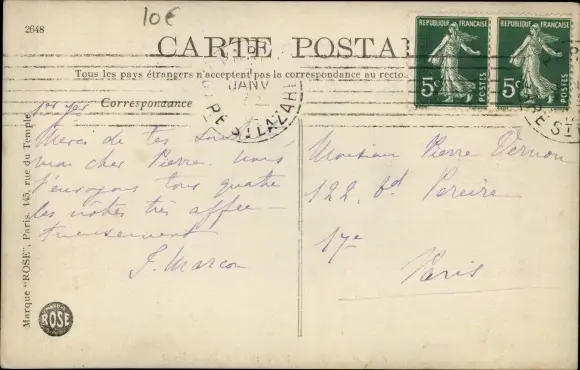 2648
10€
CARTE POSTAL
RÉPUBLIQUE FRANÇAISE
5c
POSTES
RÉPUBLIQUE FRANÇAISE
5c
POSTES
Tous les pays étrangers n'acceptent pas la correspondance au recto.
JANV
RE ST LAZARE
RE ST
Correspondance
Merci de tes
mon cher Pierre. Nous
t'envoyons tous quatre
les nôtres très affec-
tueusement
F. Marcou
Monsieur Pierre Vernon
122, bd Pereire
17e
Paris
Marque "ROSE", Paris. 145, rue du Temple
ROSE